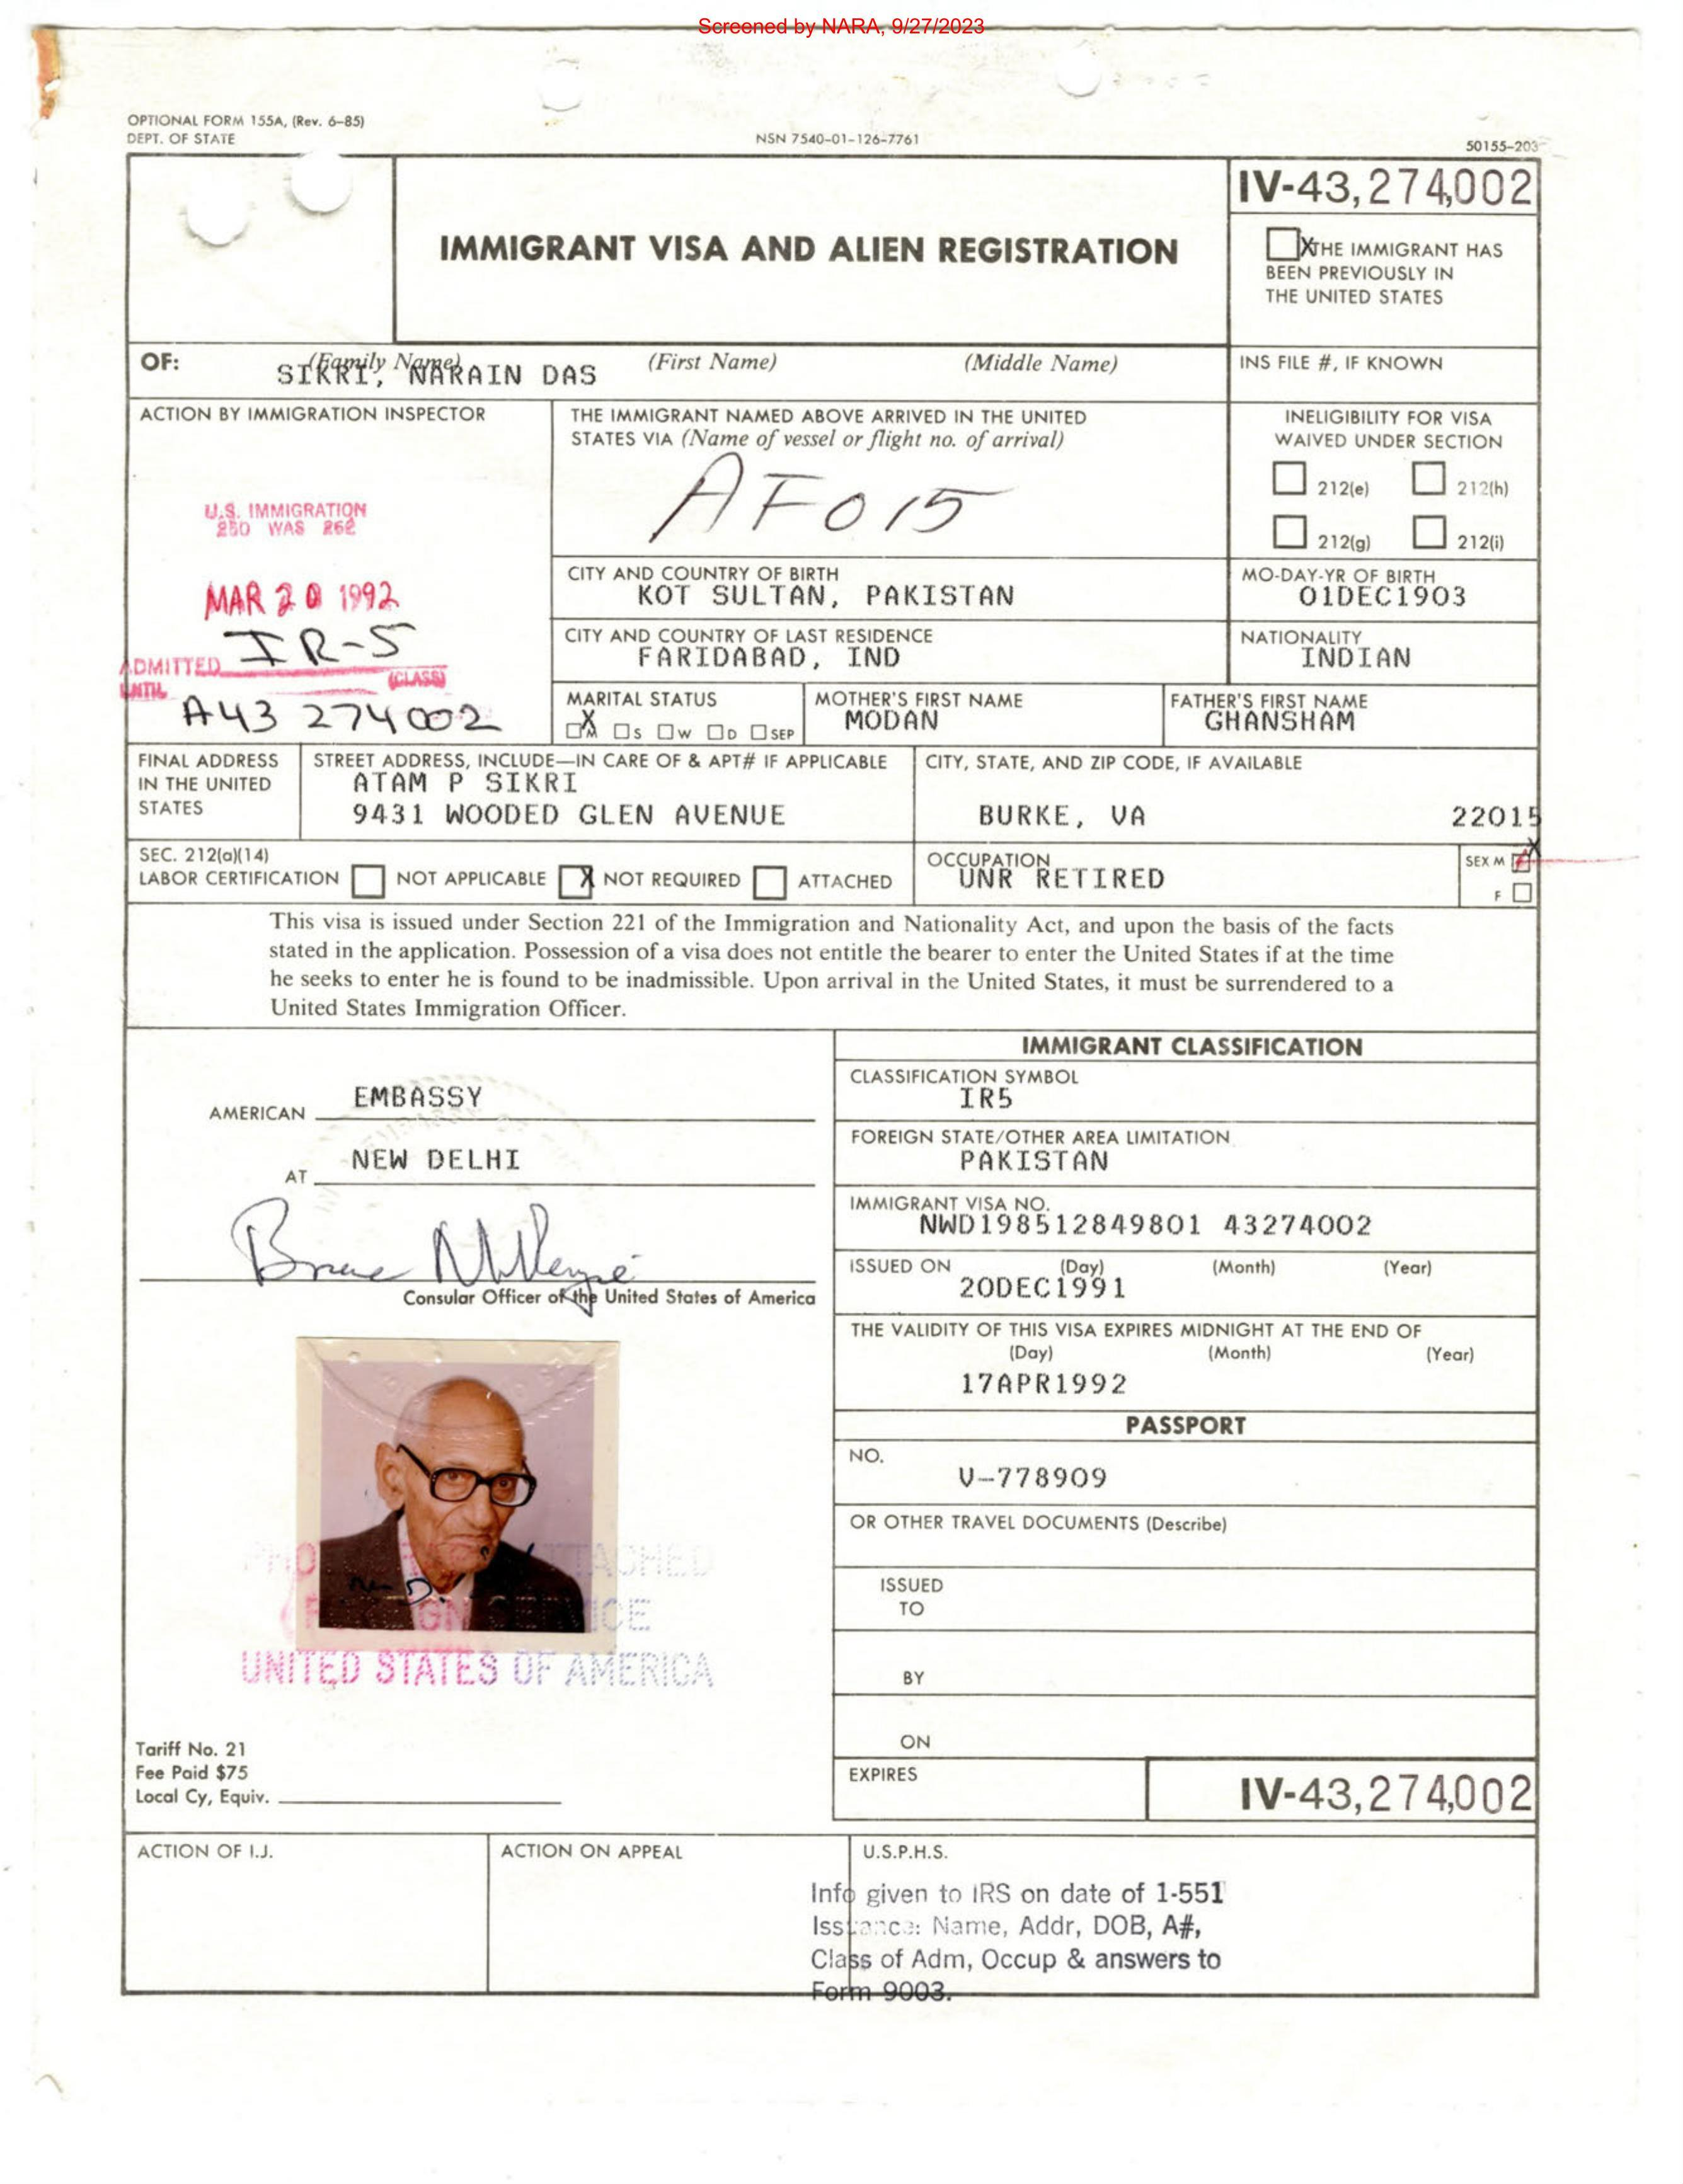 Screened by NARA, 9/27/2023
OPTIONAL FORM 155A, (Rev. 6–85)
DEPT. OF STATE
NSN 7540–01–126–7761
50155–203
IV-43,274,002
IMMIGRANT VISA AND ALIEN REGISTRATION
X THE IMMIGRANT HAS
BEEN PREVIOUSLY IN
THE UNITED STATES
OF:
(Family Name)
(First Name)
(Middle Name)
SIKRI, NARAIN DAS
INS FILE #, IF KNOWN
ACTION BY IMMIGRATION INSPECTOR
U.S. IMMIGRATION
250 WAS 262
MAR 20 1992
IR-5
ADMITTED
(CLASS)
UNTIL
A43 274002
THE IMMIGRANT NAMED ABOVE ARRIVED IN THE UNITED
STATES VIA (Name of vessel or flight no. of arrival)
AF015
INELIGIBILITY FOR VISA
WAIVED UNDER SECTION
212(e) 212(h)
212(g) 212(i)
CITY AND COUNTRY OF BIRTH
KOT SULTAN, PAKISTAN
MO-DAY-YR OF BIRTH
01DEC1903
CITY AND COUNTRY OF LAST RESIDENCE
FARIDABAD, IND
NATIONALITY
INDIAN
MARITAL STATUS
X
M S W D SEP
MOTHER'S FIRST NAME
MODAN
FATHER'S FIRST NAME
GHANSHAM
FINAL ADDRESS
IN THE UNITED
STATES
STREET ADDRESS, INCLUDE—IN CARE OF & APT# IF APPLICABLE
ATAM P SIKRI
9431 WOODED GLEN AVENUE
CITY, STATE, AND ZIP CODE, IF AVAILABLE
BURKE, VA 22015
SEC. 212(a)(14)
LABOR CERTIFICATION NOT APPLICABLE X NOT REQUIRED ATTACHED
OCCUPATION
UNR RETIRED
SEX M X
F
This visa is issued under Section 221 of the Immigration and Nationality Act, and upon the basis of the facts
stated in the application. Possession of a visa does not entitle the bearer to enter the United States if at the time
he seeks to enter he is found to be inadmissible. Upon arrival in the United States, it must be surrendered to a
United States Immigration Officer.
AMERICAN EMBASSY
AT NEW DELHI
Consular Officer of the United States of America
UNITED STATES OF AMERICA
Tariff No. 21
Fee Paid $75
Local Cy, Equiv.
IMMIGRANT CLASSIFICATION
CLASSIFICATION SYMBOL
IR5
FOREIGN STATE/OTHER AREA LIMITATION
PAKISTAN
IMMIGRANT VISA NO.
NWD198512849801 43274002
ISSUED ON (Day) (Month) (Year)
20DEC1991
THE VALIDITY OF THIS VISA EXPIRES MIDNIGHT AT THE END OF
(Day) (Month) (Year)
17APR1992
PASSPORT
NO.
V-778909
OR OTHER TRAVEL DOCUMENTS (Describe)
ISSUED
TO
BY
ON
EXPIRES
IV-43,274,002
ACTION OF I.J.
ACTION ON APPEAL
U.S.P.H.S.
Info given to IRS on date of 1-551
Issuance: Name, Addr, DOB, A#,
Class of Adm, Occup & answers to
Form 9003.